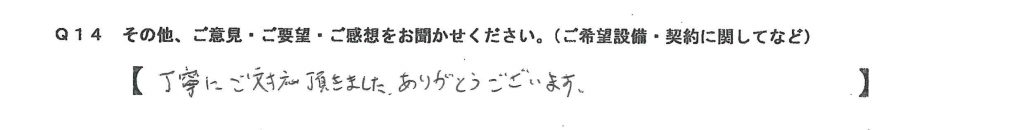 Q14 その他、ご意見・ご要望・ご感想をお聞かせください。（ご希望設備・契約に関してなど）
【 丁寧にご対応頂きました。ありがとうございます。 】